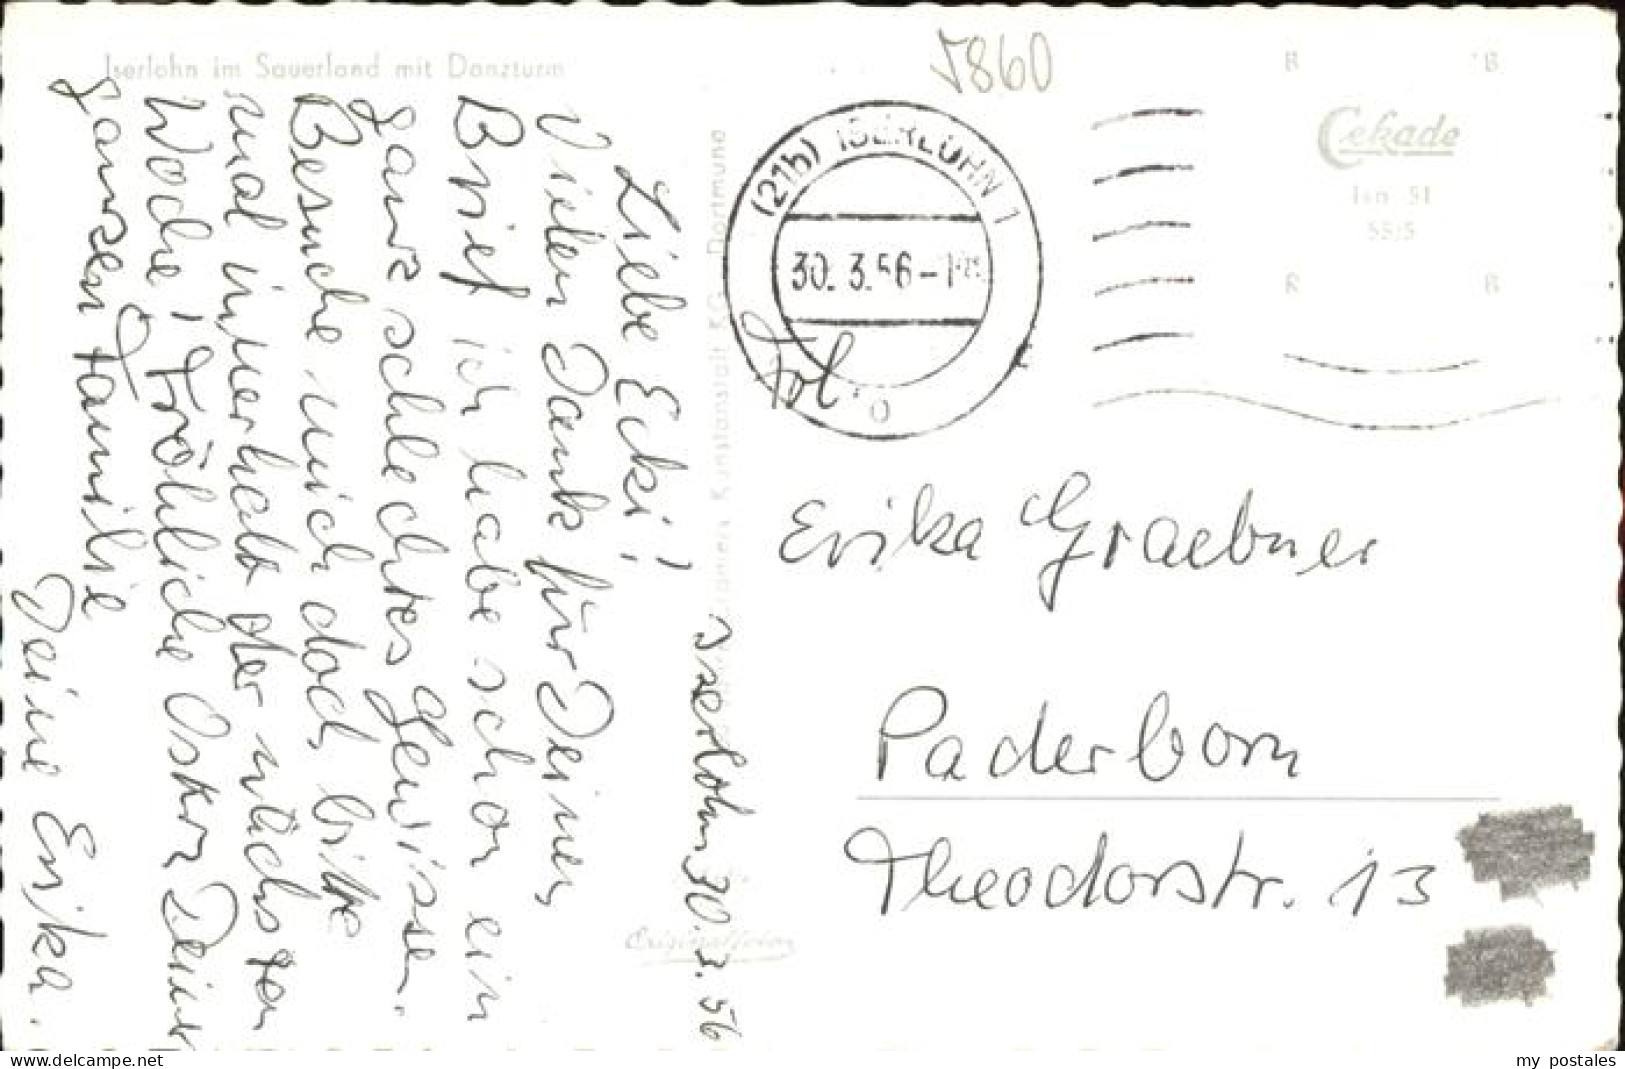 Iserlohn im Sauerland mit Danzturm
5860
(21b) ISERLOHN 1
30. 3.56-1
Cekade
Isn 51
55/5
R
B
R
B
Kunstanstalt KG Dortmund
Originalfoto
Iserlohn 30.3.56
Liebe Ecki!
Vielen Dank für Deinen
Brief ich habe schon ein
ganz schlechtes Gewissen.
Besuche mich doch bitte
mal innerhalb der nächsten
Woche! Fröhliche Ostern Deiner
ganzen Familie
Deine Erika.
Erika Graebner
Paderborn
Theodorstr. 13
delcampe.net
my postales